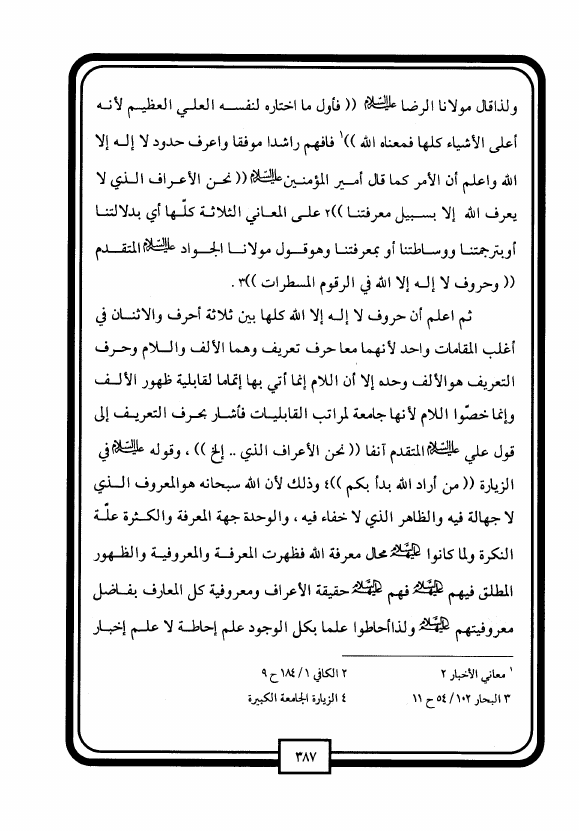 ولذاقال مولانا الرضا عليه السلام (( فأول ما اختاره لنفسه العلي العظيم لأنه
أعلى الأشياء كلها فمعناه الله ))١ فافهم راشدا موفقا واعرف حدود لا إله إلا
الله واعلم أن الأمر كما قال أمير المؤمنين عليه السلام (( نحن الأعراف الذي لا
يعرف الله إلا بسبيل معرفتنا ))٢ على المعاني الثلاثة كلّها أي بدلالتنا
أوبترجمتنا ووساطتنا أو بمعرفتنا وهوقول مولانا الجواد عليه السلام المتقدم
(( وحروف لا إله إلا الله في الرقوم المسطرات ))٣ .
ثم اعلم أن حروف لا إله إلا الله كلها بين ثلاثة أحرف والاثنان في
أغلب المقامات واحد لأنهما معا حرف تعريف وهما الألف واللام وحرف
التعريف هوالألف وحده إلا أن اللام إنما أتي بها إتماما لقابلية ظهور الألف
وإنما خصّوا اللام لأنها جامعة لمراتب القابليات فأشار بحرف التعريف إلى
قول علي عليه السلام المتقدم آنفا (( نحن الأعراف الذي .. إلخ )) ، وقوله عليه السلام في
الزيارة (( من أراد الله بدأ بكم ))٤ وذلك لأن الله سبحانه هوالمعروف الذي
لا جهالة فيه والظاهر الذي لا خفاء فيه ، والوحدة جهة المعرفة والكثرة علّة
النكرة ولما كانوا عليهم السلام محال معرفة الله فظهرت المعرفة والمعروفية والظهور
المطلق فيهم عليهم السلام فهم عليهم السلام حقيقة الأعراف ومعروفية كل المعارف بفاضل
معروفيتهم عليهم السلام ولذاأحاطوا علما بكل الوجود علم إحاطة لا علم إخبار
١ معاني الأخبار ٢
٢ الكافي ١ / ١٨٤ ح ٩
٣ البحار ١٠٢ / ٥٤ ح ١١
٤ الزيارة الجامعة الكبيرة
٣٨٧